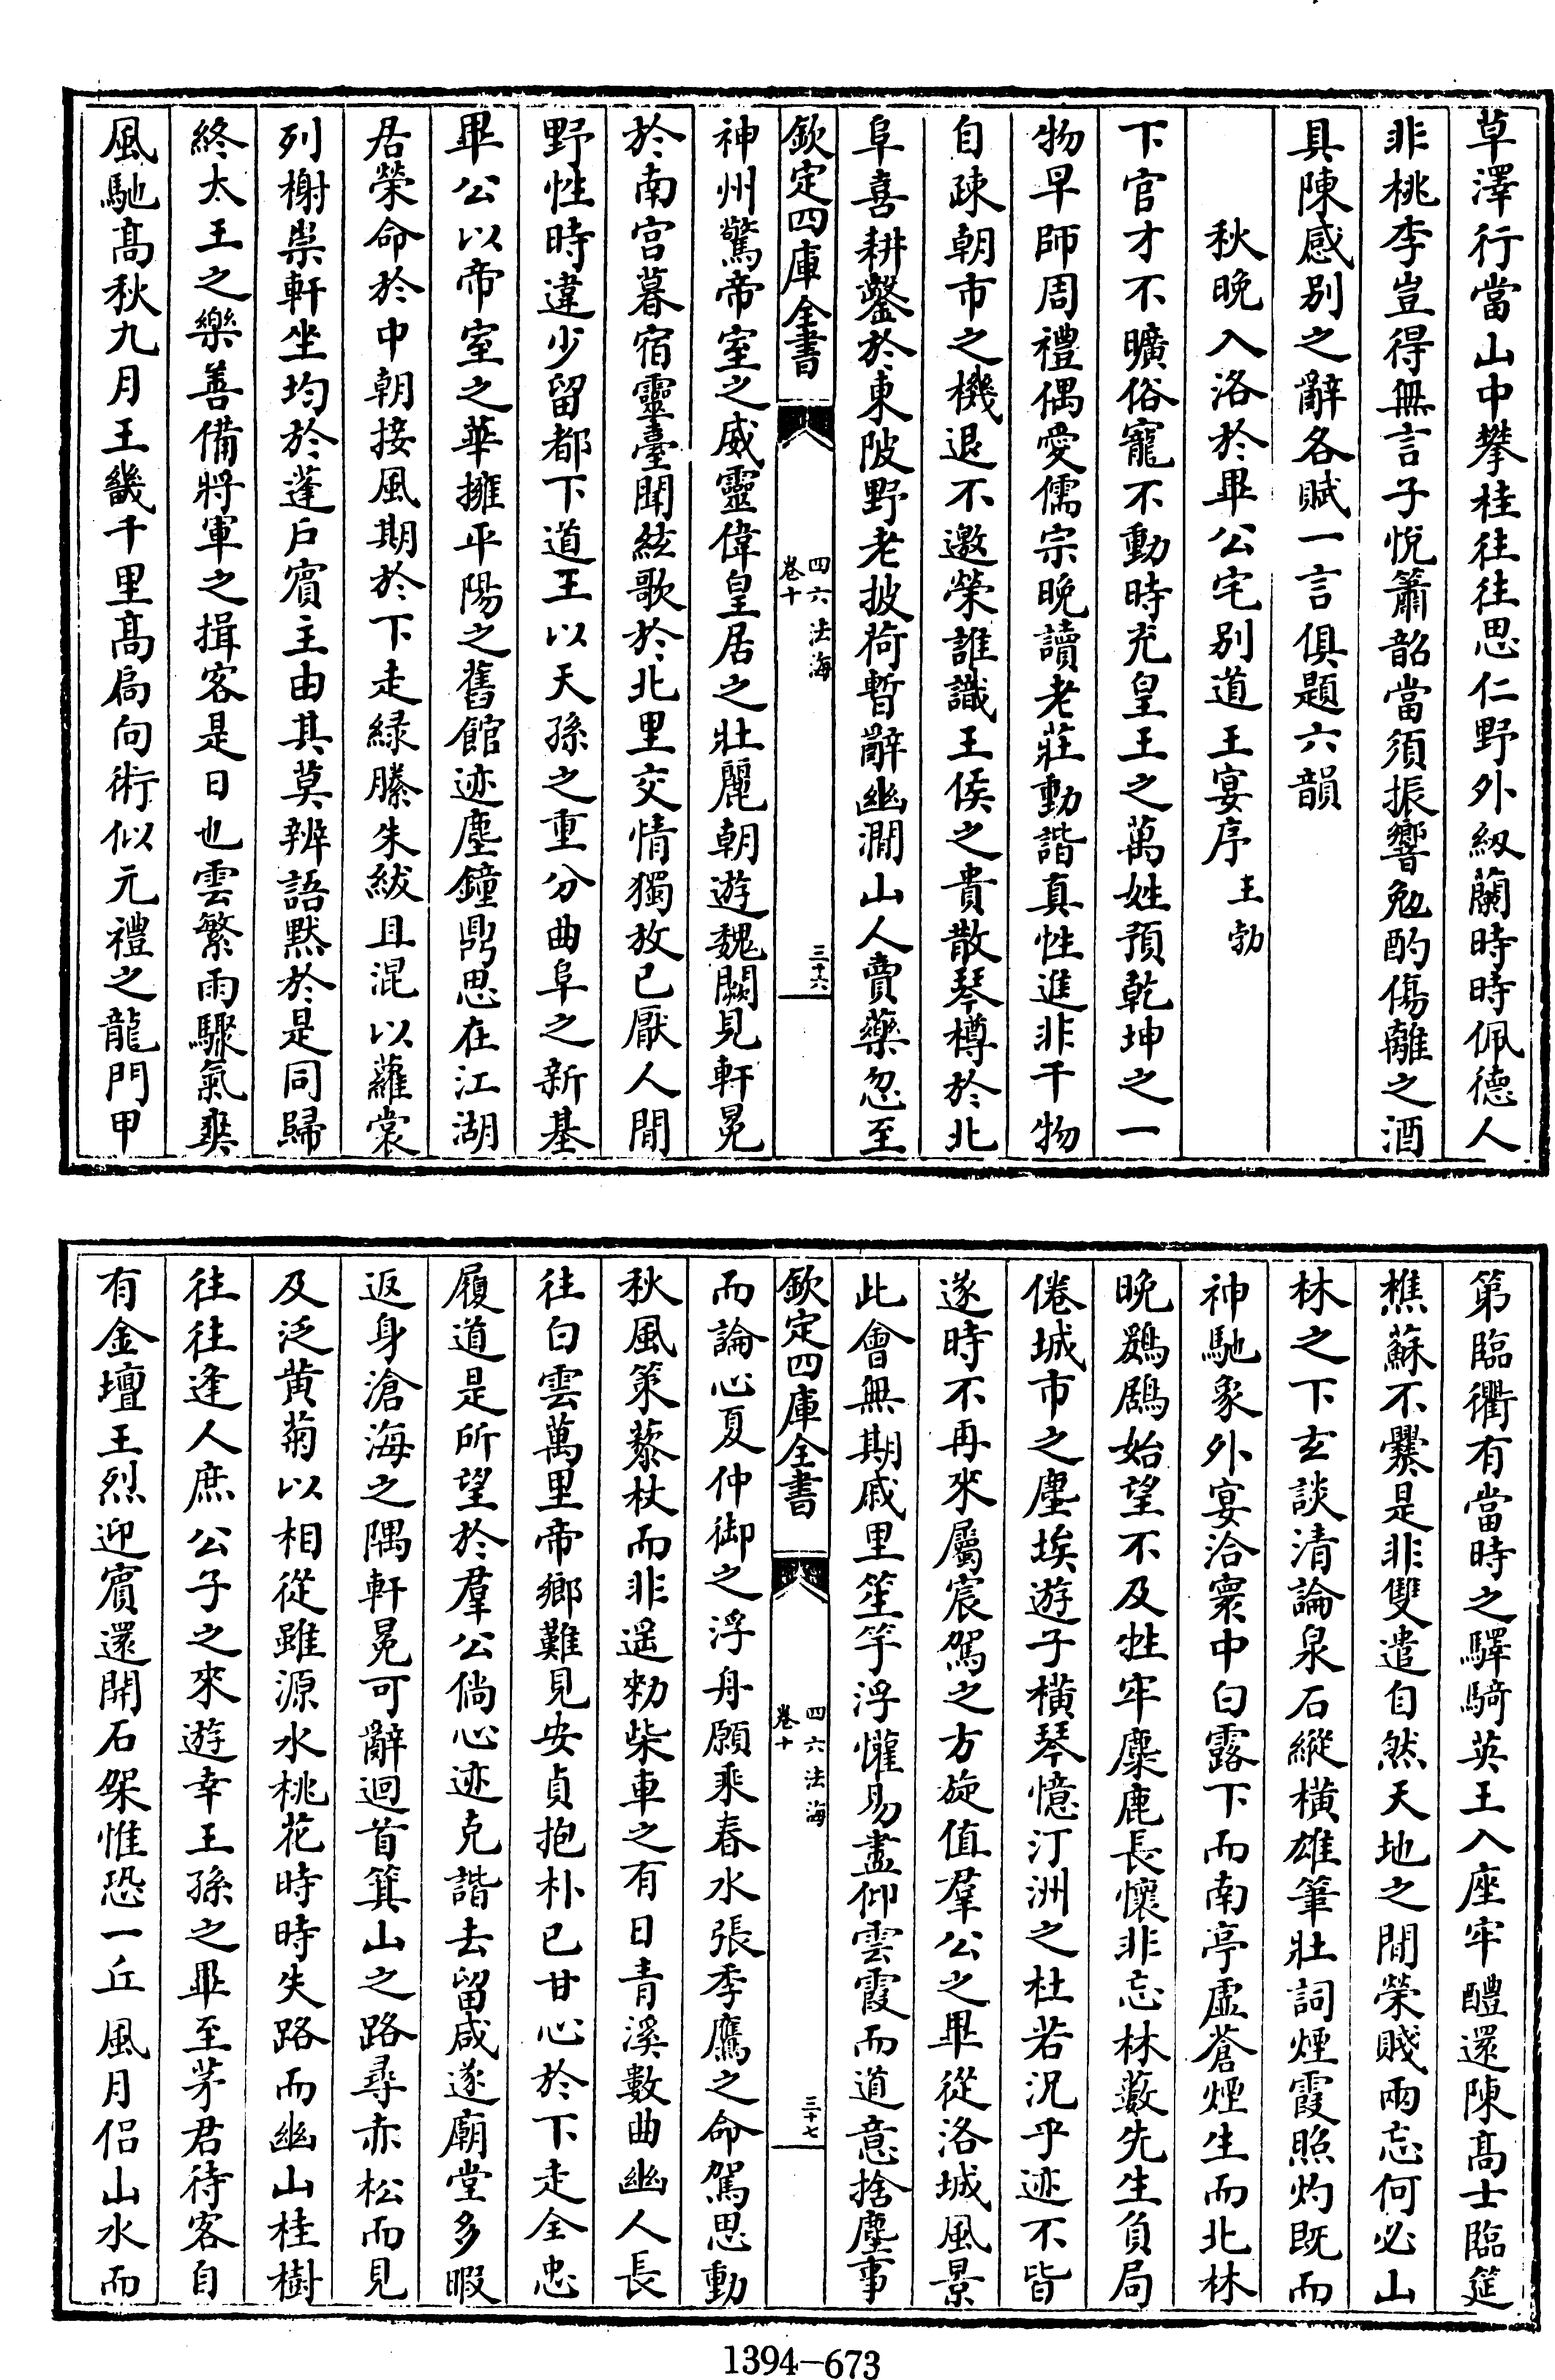 草澤行當山中攀桂往往思仁野外紉蘭時時佩德人
非桃李豈得無言子悅簫韶當須振響勉酌傷離之酒
具陳感别之辭各賦一言俱題六韻
秋晚入洛於畢公宅别道王宴序 王勃
下官才不曠俗寵不動時充皇王之萬姓預乾坤之一
物早師周禮偶愛儒宗晚讀老莊動諧真性進非干物
自疎朝市之機退不邀榮誰識王侯之貴散琴樽於北
阜喜耕鑿於東陂野老披荷暫辭幽澗山人賣藥忽至
欽定四庫全書 四六法海 卷十 三十六
神州驚帝室之威靈偉皇居之壯麗朝遊魏闕見軒冕
於南宫暮宿靈臺聞絃歌於北里交情獨放已厭人間
野性時違少留都下道王以天孫之重分曲阜之新基
畢公以帝室之華擁平陽之舊館迹塵鐘鼎思在江湖
居榮命於中朝接風期於下走緑縢朱紱且混以蘿裳
列榭崇軒坐均於蓬戶賓主由其莫辨語黙於是同歸
終太王之樂善備將軍之揖客是日也雲繁雨驟氣爽
風馳髙秋九月王畿千里髙扃向術似元禮之龍門甲
第臨衢有當時之驛騎英王入座牢醴還陳髙士臨筵
樵蘇不爨是非雙遣自然天地之間榮賤兩忘何必山
林之下玄談清論泉石縱橫雄筆壯詞煙霞照灼既而
神馳象外宴洽寰中白露下而南亭虛蒼煙生而北林
晚鷃鶋始望不及牲牢麋鹿長懷非忘林藪先生負局
倦城市之塵埃遊子橫琴憶汀洲之杜若況乎迹不皆
遂時不再來屬宸駕之方旋值羣公之畢從洛城風景
此會無期戚里笙竽浮懽易盡仰雲霞而道意捨塵事
欽定四庫全書 四六法海 卷十 三十七
而論心夏仲御之浮舟願乘春水張季鷹之命駕思動
秋風策藜杖而非遥勑柴車之有日青溪數曲幽人長
往白雲萬里帝鄉難見安貞抱朴已甘心於下走全忠
履道是所望於羣公倘心迹克諧去留咸遂廟堂多暇
返身滄海之隅軒冕可辭迴首箕山之路尋赤松而見
及泛黄菊以相從雖源水桃花時時失路而幽山桂樹
往往逢人庶公子之來遊幸王孫之畢至茅君待客自
有金壇王烈迎賓還開石架惟恐一丘風月侣山水而
1394-673